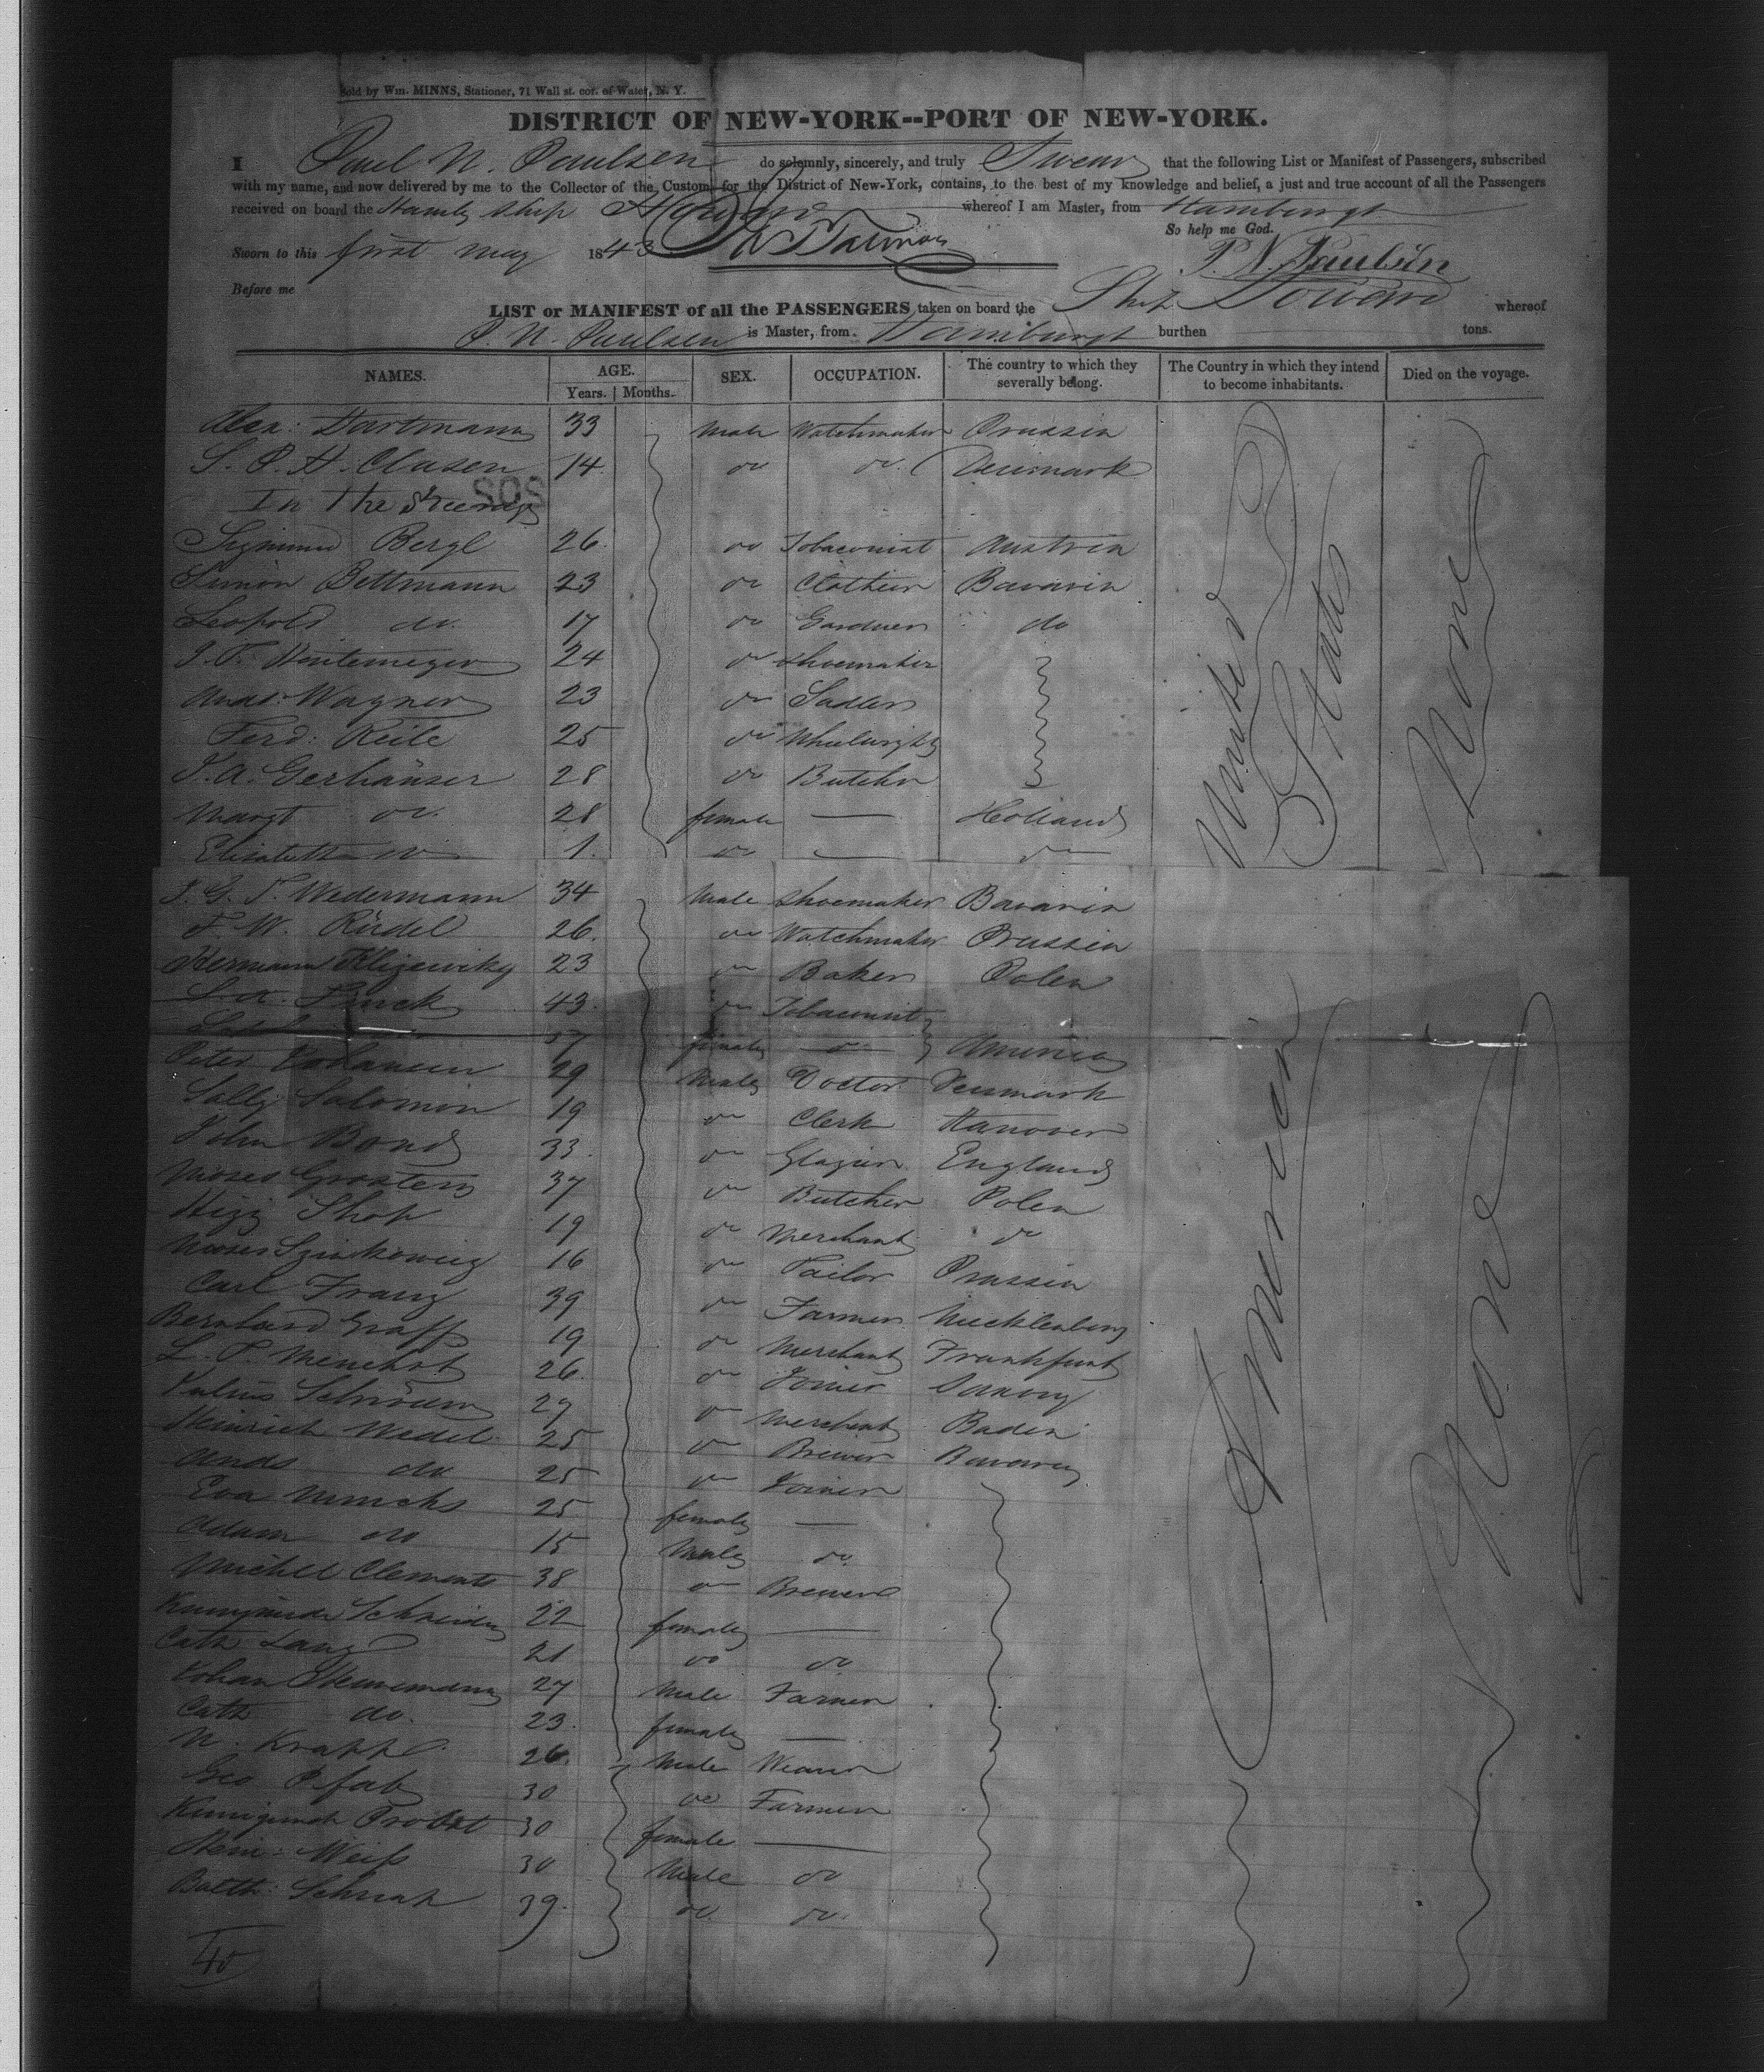 Sold by Wm. MINNS, Stationer, 71 Wall st. cor. of Water, N. Y.
DISTRICT OF NEW-YORK--PORT OF NEW-YORK.
I Paul N. Paulsen do solemnly, sincerely, and truly Swear that the following List or Manifest of Passengers, subscribed
with my name, and now delivered by me to the Collector of the Customs for the District of New-York, contains, to the best of my knowledge and belief, a just and true account of all the Passengers
received on board the Hambg Ship Howard whereof I am Master, from Hamburgh
So help me God.
Sworn to this first May 1843 P. N. Paulsen
Before me
LIST or MANIFEST of all the PASSENGERS taken on board the Ship Howard whereof
P. N. Paulsen is Master, from Hamburgh burthen tons.
NAMES. AGE. Years. Months. SEX. OCCUPATION. The country to which they severally belong. The Country in which they intend to become inhabitants. Died on the voyage.
Alex: Hartmann 33 Male Watchmaker Prussia
S. P. H. Clasen 14 do do Denmark
SOS
In The Steerage
Sigmund Bergl 26 do Tobaconist Austria
Simon Bettmann 23 do Clothier Bavaria
Leopold do 17 do Gardner do
24 do Shoemaker
Andr: Wagner 23 do Sadler
Ferd: Reile 25 do Wheelwright
J. A. Gerhäuser 28 do Butcher
Margt do 28 female — Holland
Elisabeth do 1 do — do
United States
None
J. G. F. Wedermann 34 Male Shoemaker Bavaria
F. W. Rüdel 26 do Watchmaker Prussia
Hermann 23 do Baker Polen
43 do Tobaconist
37 female do America
Peter Johansen 29 Male Doctor Denmark
Sally Salomon 19 do Clerk Hanover
John Bond 33 do Glazier England
Moses 37 do Butcher Polen
Shop 19 do Merchant do
Moses 16 do Tailor Prussia
Carl Franz 39 do Farmer Mecklenburg
Bernhard Graff 19 do Merchant Frankfurt
L. P. 26 do Joiner Saxony
Julius 27 do Merchant Baden
Heinrich Wedel 25 do Brewer Bavaria
Andr do 25 do Joiner
Eva 25 female —
Adam do 15 Male do
Michel Clements 38 do Brewer
Schneider 22 female —
Cath Lang 21 do do
Johan 27 Male Farmer
Cath do 23 female —
N. Krapp 26 Male Weaver
Geo Pfab 30 do Farmer
Kunigunda Probst 30 female —
Hein: Weiß 30 Male do
Balth: 39 do do
America
None
40